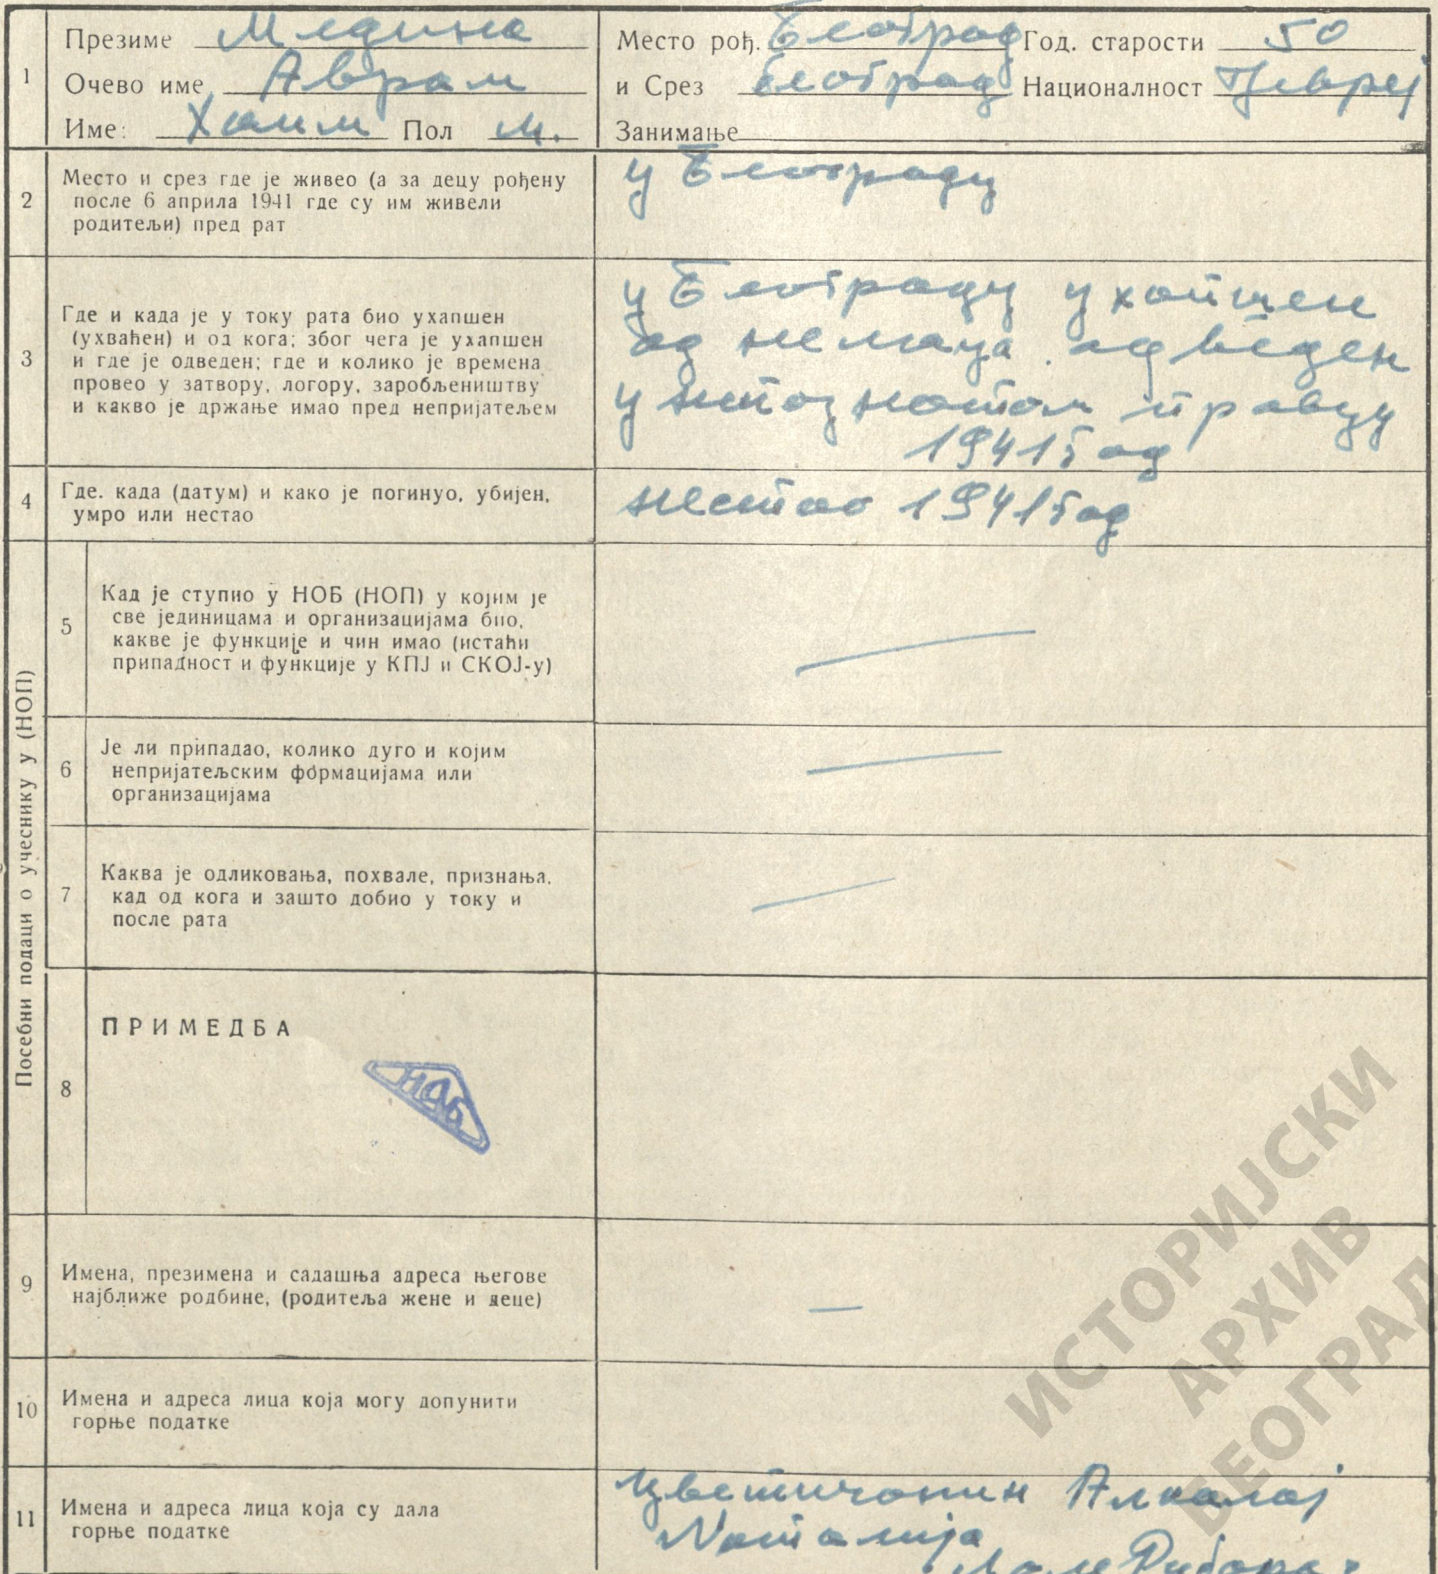 1
Презиме Медина
Очево име Аврам
Име: Хаим Пол м.
Место рођ. Београд Год. старости 50
и Срез Београд Националност Јевреј
Занимање
2
Место и срез где је живео (а за децу рођену
после 6 априла 1941 где су им живели
родитељи) пред рат
у Београду
3
Где и када је у току рата био ухапшен
(ухваћен) и од кога; због чега је ухапшен
и где је одведен; где и колико је времена
провео у затвору, логору, заробљеништву
и какво је држање имао пред непријатељем
у Београду ухапшен
од немаца одведен
у непознатом правцу
1941 год
4
Где, када (датум) и како је погинуо, убијен,
умро или нестао
нестао 1941 год
Посебни подаци о учеснику у (НОП)
5
Кад је ступио у НОБ (НОП) у којим је
све јединицама и организацијама био,
какве је функције и чин имао (истаћи
припадност и функције у КПЈ и СКОЈ-у)
6
Је ли припадао, колико дуго и којим
непријатељским формацијама или
организацијама
7
Каква је одликовања, похвале, признања,
кад од кога и зашто добио у току и
после рата
8
ПРИМЕДБА
НОБ
9
Имена, презимена и садашња адреса његове
најближе родбине, (родитеља жене и деце)
10
Имена и адреса лица која могу допунити
горње податке
11
Имена и адреса лица која су дала
горње податке
Цветичанин Алкалај
Наталија
ИСТОРИЈСКИ
АРХИВ
БЕОГРАД